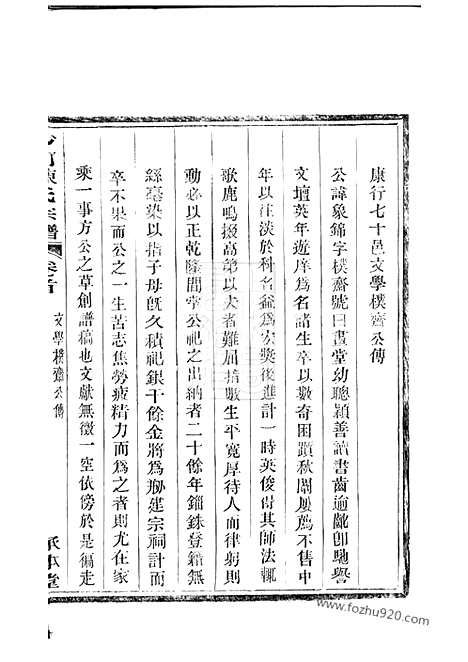 康行七十邑文學樸齋公傳
公諱象錦字樸齋號曰晝堂幼聰穎善讀書齒逾齓卽馳譽
文壇英年遊庠爲名諸生卒以數奇困躓秋闈屢薦不售中
年以往淡於科名爺爲宏獎後進計一時英俊得其師法輒
歌鹿鳴掇高第以去者難屈指數生平寬厚待人而律躬則
動必以正乾隆間掌公祀之出納者二十餘年錙銖登籍無
絲毫染以指子母旣久積祀銀千餘金將爲剏建宗祠計而
卒不果而公之一生苦志焦勞疲精力而爲之者則尤在家
乘一事方公之草創譜稿也文獻無徵一空依傍於是徧走
陳氏宗譜
卷之首
文學樸齋公傳
承本堂
www.fozhu920.com